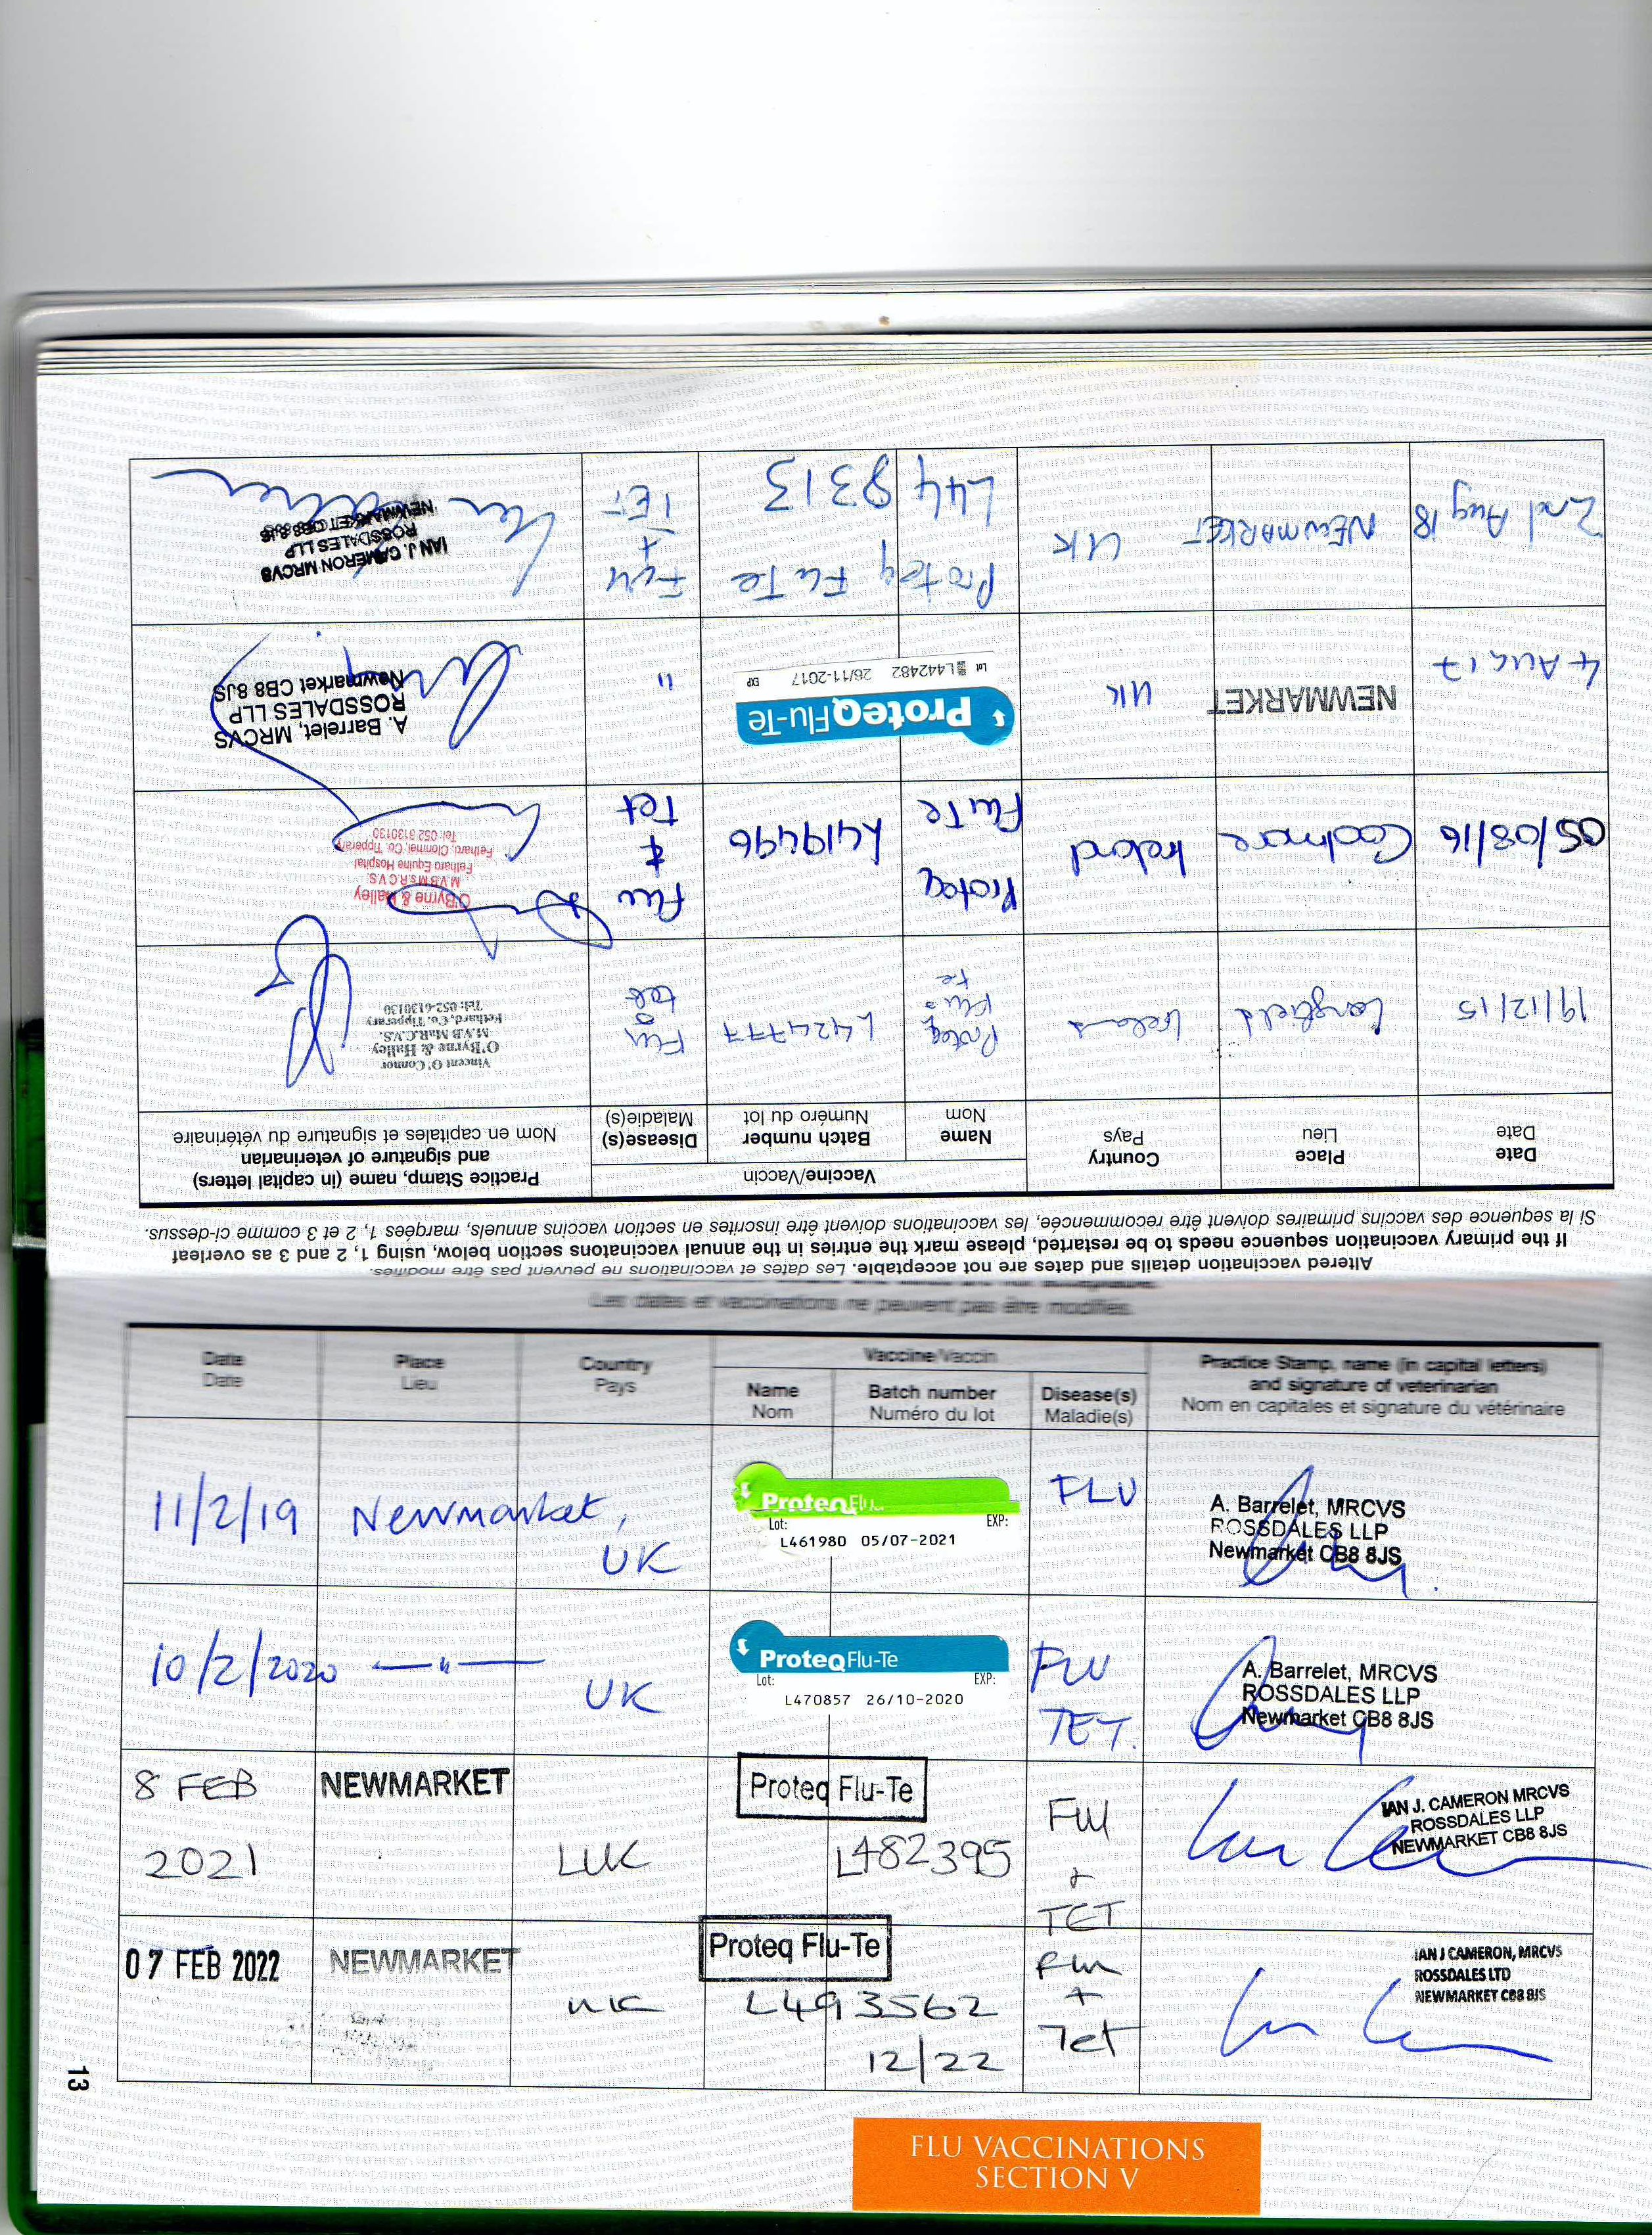 Altered vaccination details and dates are not acceptable. Les dates et vaccinations ne peuvent pas être modifies.
If the primary vaccination sequence needs to be restarted, please mark the entries in the annual vaccinatons section below, using 1, 2 and 3 as overleaf
Si la sequence des vaccins primaires doivent être recommencée, les vaccinations doivent être inscrites en section vaccins annuels, marqées 1, 2 et 3 comme ci-dessus.
Date Place Country Vaccine/Vaccin Practice Stamp, name (in capital letters)
Date Lieu Pays Name Batch number Disease(s) and signature of veterinarian
Nom Numéro du lot Maladie(s) Nom en capitales et signature du vétérinaire
19/12/15 Longfield Ireland Proteq L424777 Flu
Flu-
Te
& tet
Vincent O'Connor
O'Byrne & Halley
M.V.B M.s.R.C.V.S.
Fethard, Co. Tipperary
Tel: 052-6130130
05/08/16 Coolmore Ireland Proteq L419496 Flu
Flu Te
& Tet
O'Byrne & Halley
M.V.B M.s R.C.V.S.
Fethard Equine Hospital
Fethard, Clonmel, Co. Tipperary
Tel: 052 6130130
4 AUG 17 NEWMARKET UK ProteqFlu-Te "
Lot L442482 26/11-2017 EXP
A. Barrelet, MRCVS
ROSSDALES LLP
Newmarket CB8 8JS
2nd Aug 18 NEWMARKET UK Proteq Flu Te Flu
L448313 + TET
IAN J. CAMERON MRCVS
ROSSDALES LLP
NEWMARKET CB8 8JS
Les dates et vaccinations ne peuvent pas être modifies.
Date Place Country Vaccine/Vaccin Practice Stamp, name (in capital letters)
Date Lieu Pays Name Batch number Disease(s) and signature of veterinarian
Nom Numéro du lot Maladie(s) Nom en capitales et signature du vétérinaire
11/2/19 Newmarket, UK ProteqFlu FLU
Lot: EXP:
L461980 05/07-2021
A. Barrelet, MRCVS
ROSSDALES LLP
Newmarket CB8 8JS
10/2/2020 —"— UK ProteqFlu-Te FLU
Lot: EXP: TET.
L470857 26/10-2020
A. Barrelet, MRCVS
ROSSDALES LLP
Newmarket CB8 8JS
8 FEB NEWMARKET Proteq Flu-Te Flu
2021 UK L482395 +
TET
IAN J. CAMERON MRCVS
ROSSDALES LLP
NEWMARKET CB8 8JS
07 FEB 2022 NEWMARKET Proteq Flu-Te Flu
UK L493562 +
12/22 Tet
IAN J CAMERON, MRCVS
ROSSDALES LTD
NEWMARKET CB8 8JS
13
FLU VACCINATIONS
SECTION V